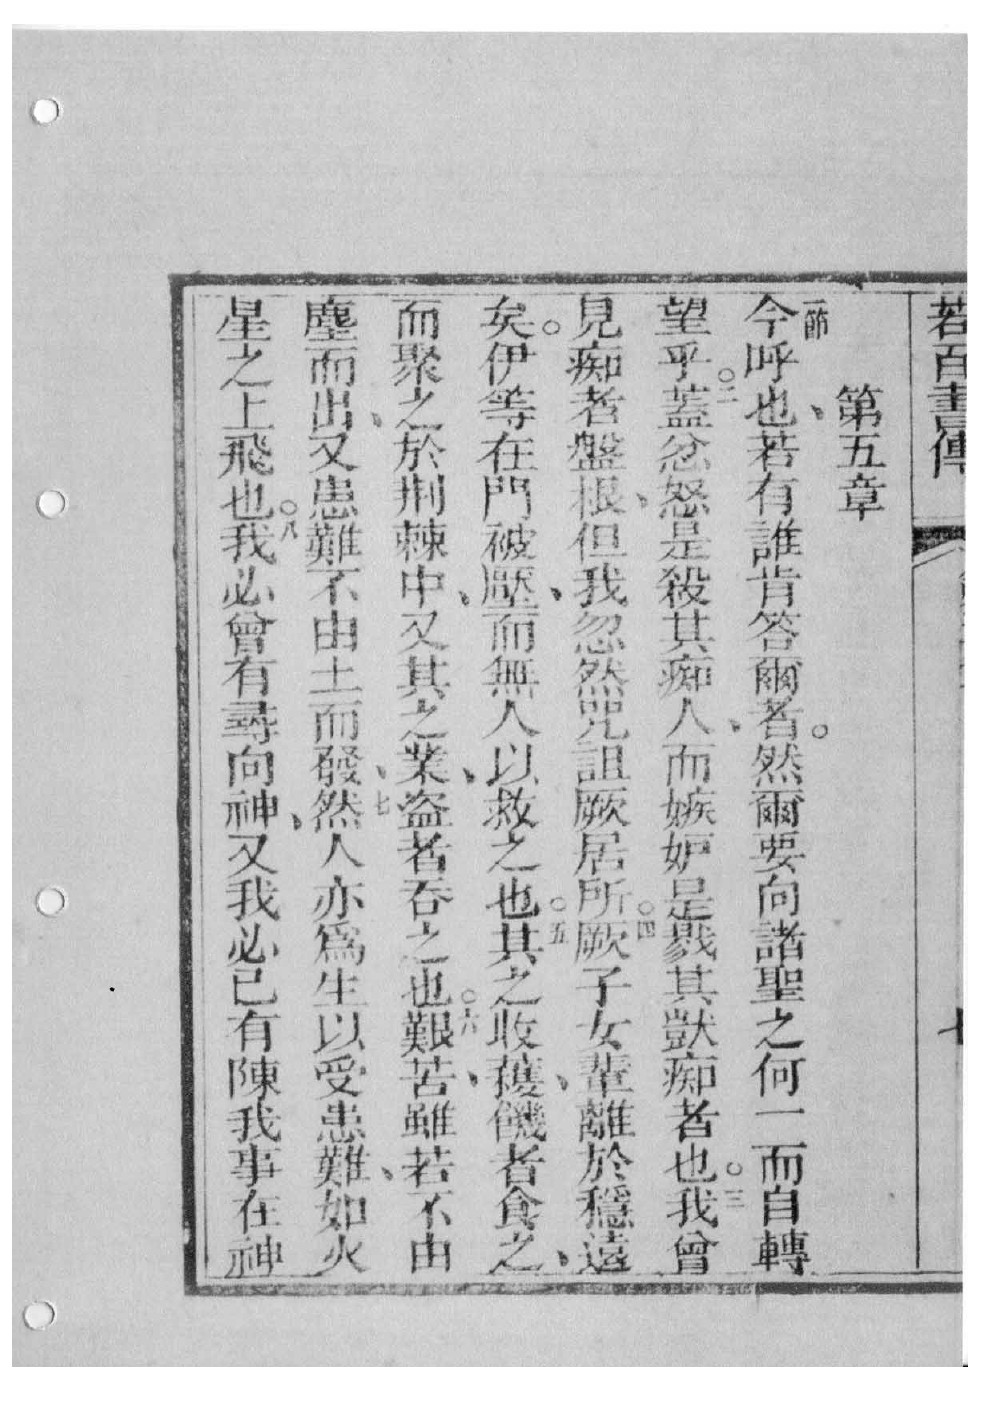 若百書傳
第五章
一節今呼也、若有誰肯答爾者。然爾要向諸聖之何一而自轉
望乎○二蓋忿怒是殺其痴人、而嫉妒是戮其獃痴者也○三我曾
見痴者盤根、但我忽然咒詛厥居所○四厥子女輩離於穩遠
矣。伊等在門被壓、而無人以救之也○五其之收穫、饑者食之、
而聚之於荆棘中、又其之業、盜者吞之也○六艱苦、雖若不由
塵而出、又患難不由土而發、七然人亦爲生以受患難、如火
星之上飛也○八我必曾有尋向神、又我必已有陳我事在神